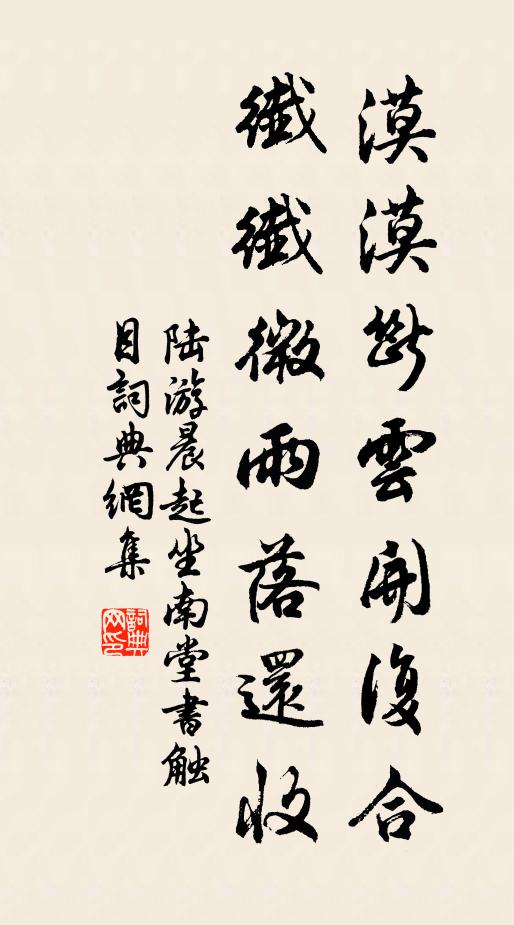 漠漠斷雲開復合
纖纖微雨落還收
陆游晨起坐南堂書触
目詞典網集
詞典
网印